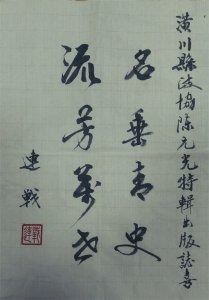 潢川縣政協陳元光特輯出版誌喜
名垂青史
流芳萬世
連戰